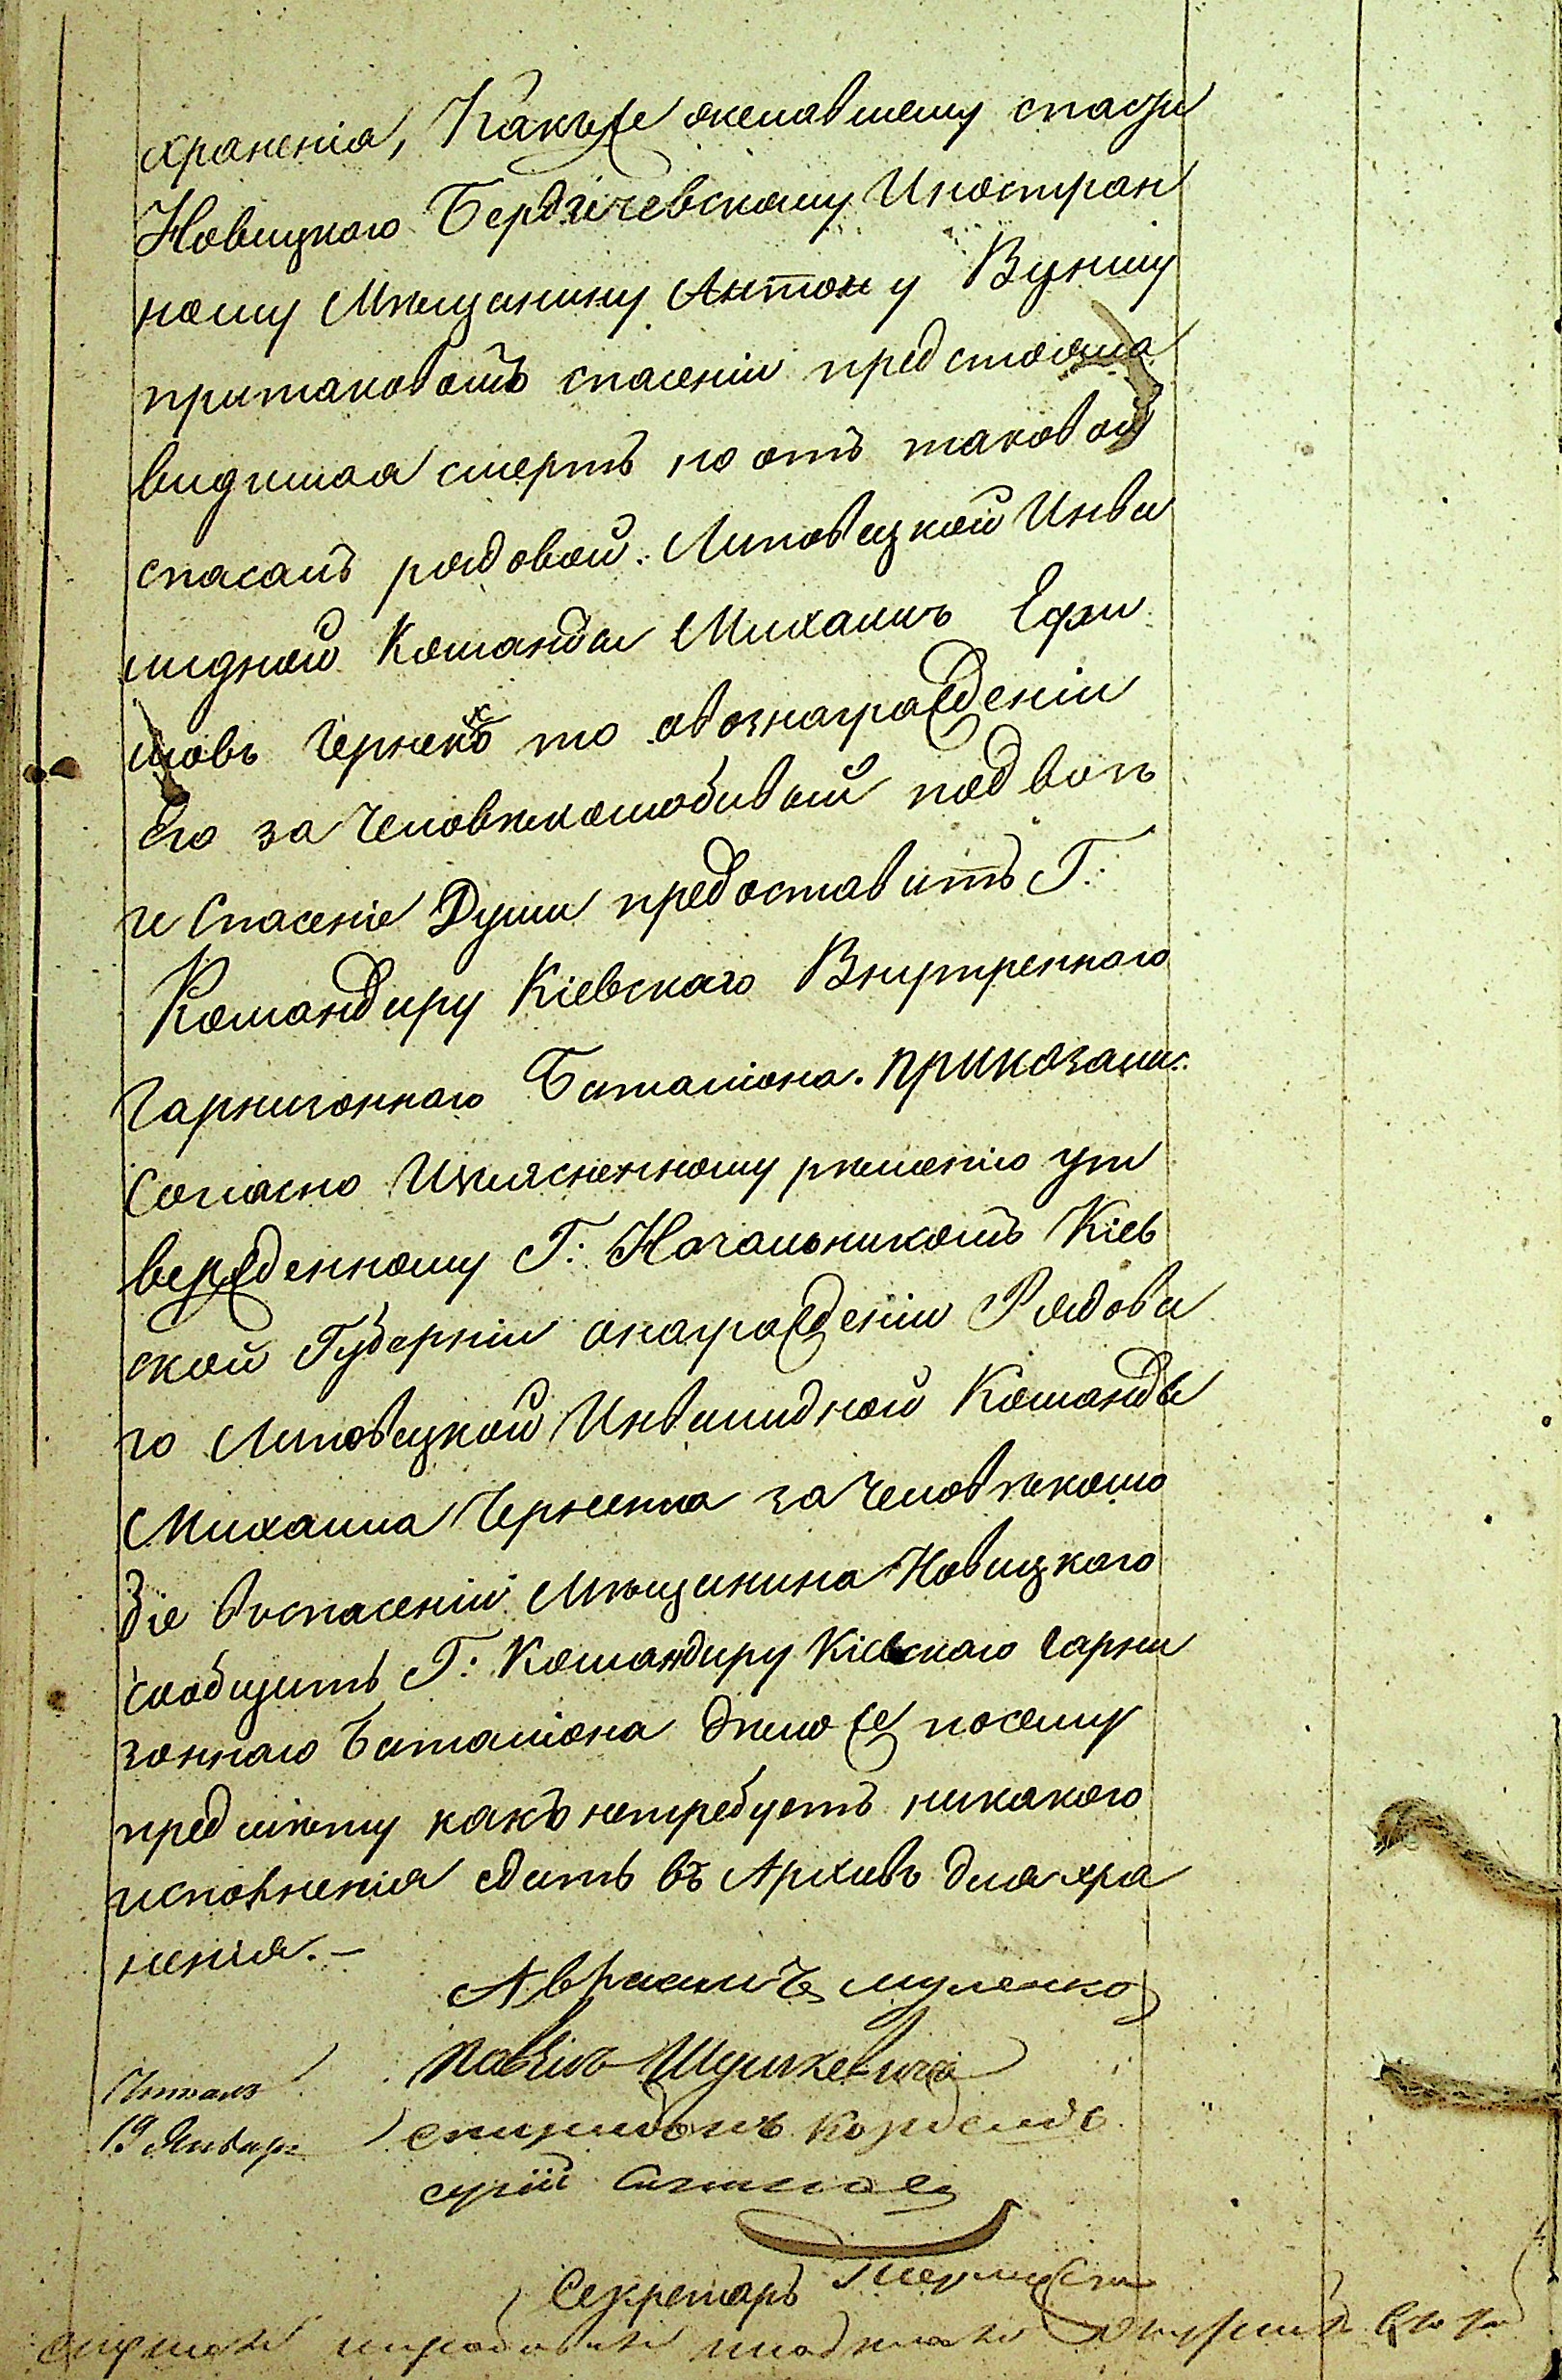 храненія, Какъже желавшему спасти
Новицкого Бердичевскому Иностран
ному Мѣщанину Антону
притаковомъ спасеніи предстояла
видимая смерть, но отъ таковой
спасалъ рядовой Липовецкой Инва
лидной Команды Михаилъ Ефи
мовъ Черненко то овознагражденіи
его за Человѣколюбивый подвигъ
и Спасеніе Души предоставить Г:
Командиру Кіевскаго Внутренного
Гарнизоннаго Баталіона. приказали:
Согласно Изъясненному рѣшенію ут
вержденному Г: Начальникомъ Кіев
ской Губерніи онагражденіи Рядова
го Липовецкой Инвалидной Команды
Михаила Черненка за Человѣколю
біе воспасеніи Мѣщанина Новицкого
сообщить Г: Командиру Кіевскаго Гарни
зоннаго Баталіона дѣло же посему
предмѣту какъ нетребуетъ никакого
исполненія сдать въ Архивъ для хра
ненія. –
Читалъ
19 Январ
Секретарь